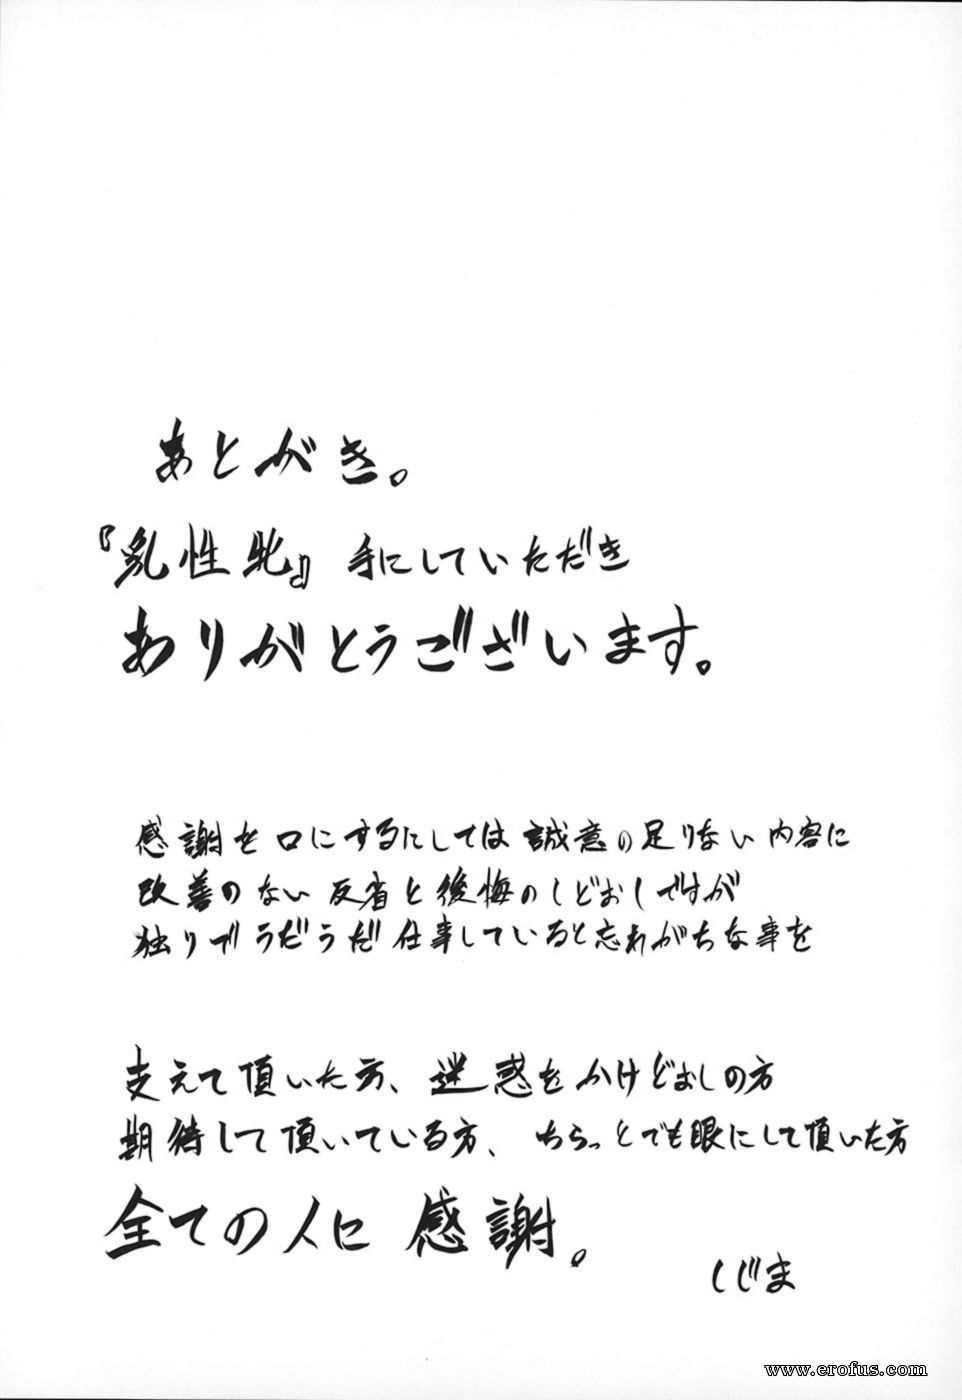 あとがき。
『乳性牝』手にしていただき
ありがとうございます。
感謝を口にするにしては誠意の足りない内容に
改善のない反省と後悔のしどおしですが
独りでうだうだ仕事していると忘れがちな事を
支えて頂いた方、迷惑をかけどおしの方
期待して頂いている方、ちらっとでも眼にして頂いた方
全ての人に感謝。
しじま
www.erofus.com